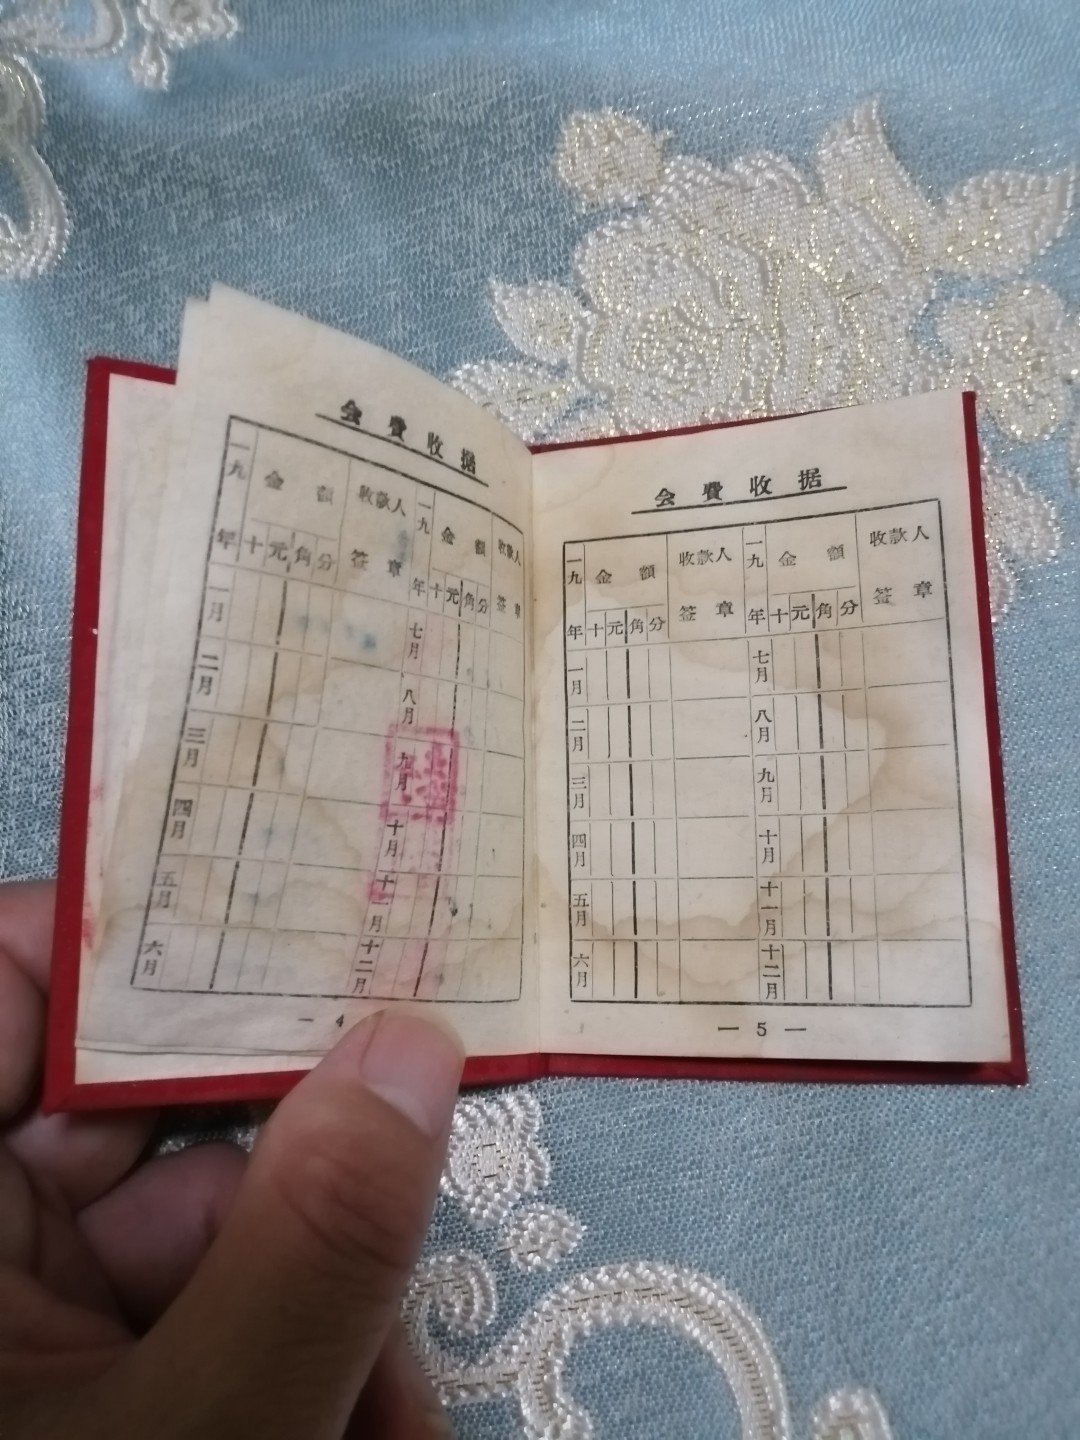 会費收据
一九年 金額 收款人签章 一九年 金額 收款人签章
十 元 角 分 十 元 角 分
一月 七月
二月 八月
三月 九月
四月 十月
五月 十一月
六月 十二月
— 4
会費收据
一九年 金額 收款人签章 一九年 金額 收款人签章
十 元 角 分 十 元 角 分
一月 七月
二月 八月
三月 九月
四月 十月
五月 十一月
六月 十二月
— 5 —